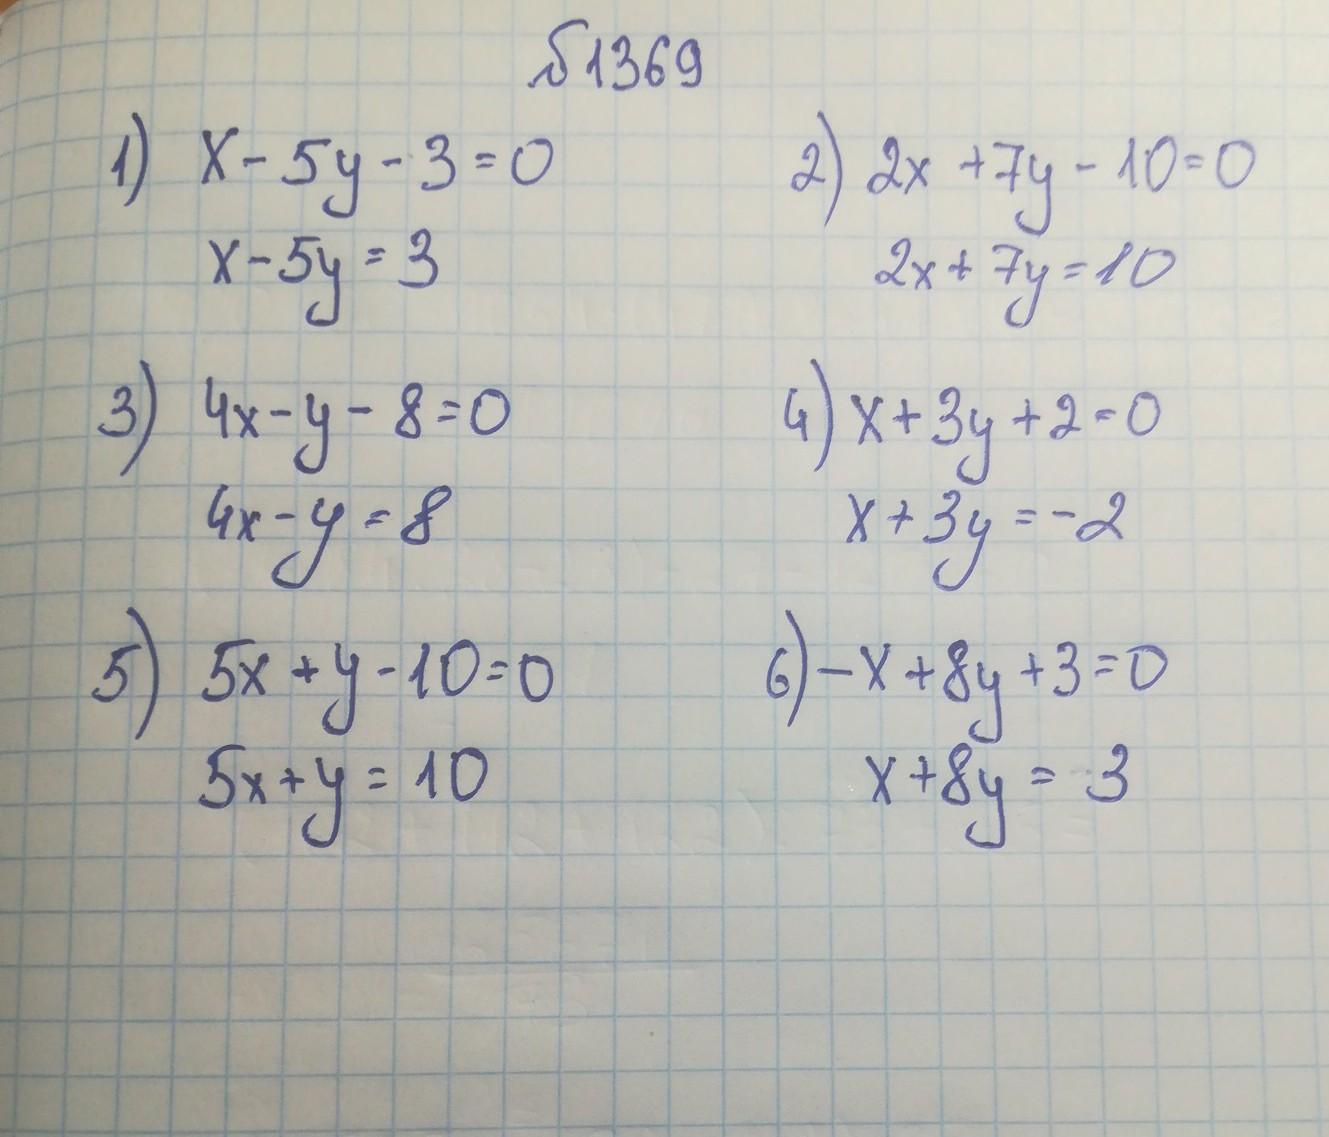 №1369
1) x - 5y - 3 = 0
x - 5y = 3
2) 2x + 7y - 10 = 0
2x + 7y = 10
3) 4x - y - 8 = 0
4x - y = 8
4) x + 3y + 2 = 0
x + 3y = -2
5) 5x + y - 10 = 0
5x + y = 10
6) -x + 8y + 3 = 0
x + 8y = 3